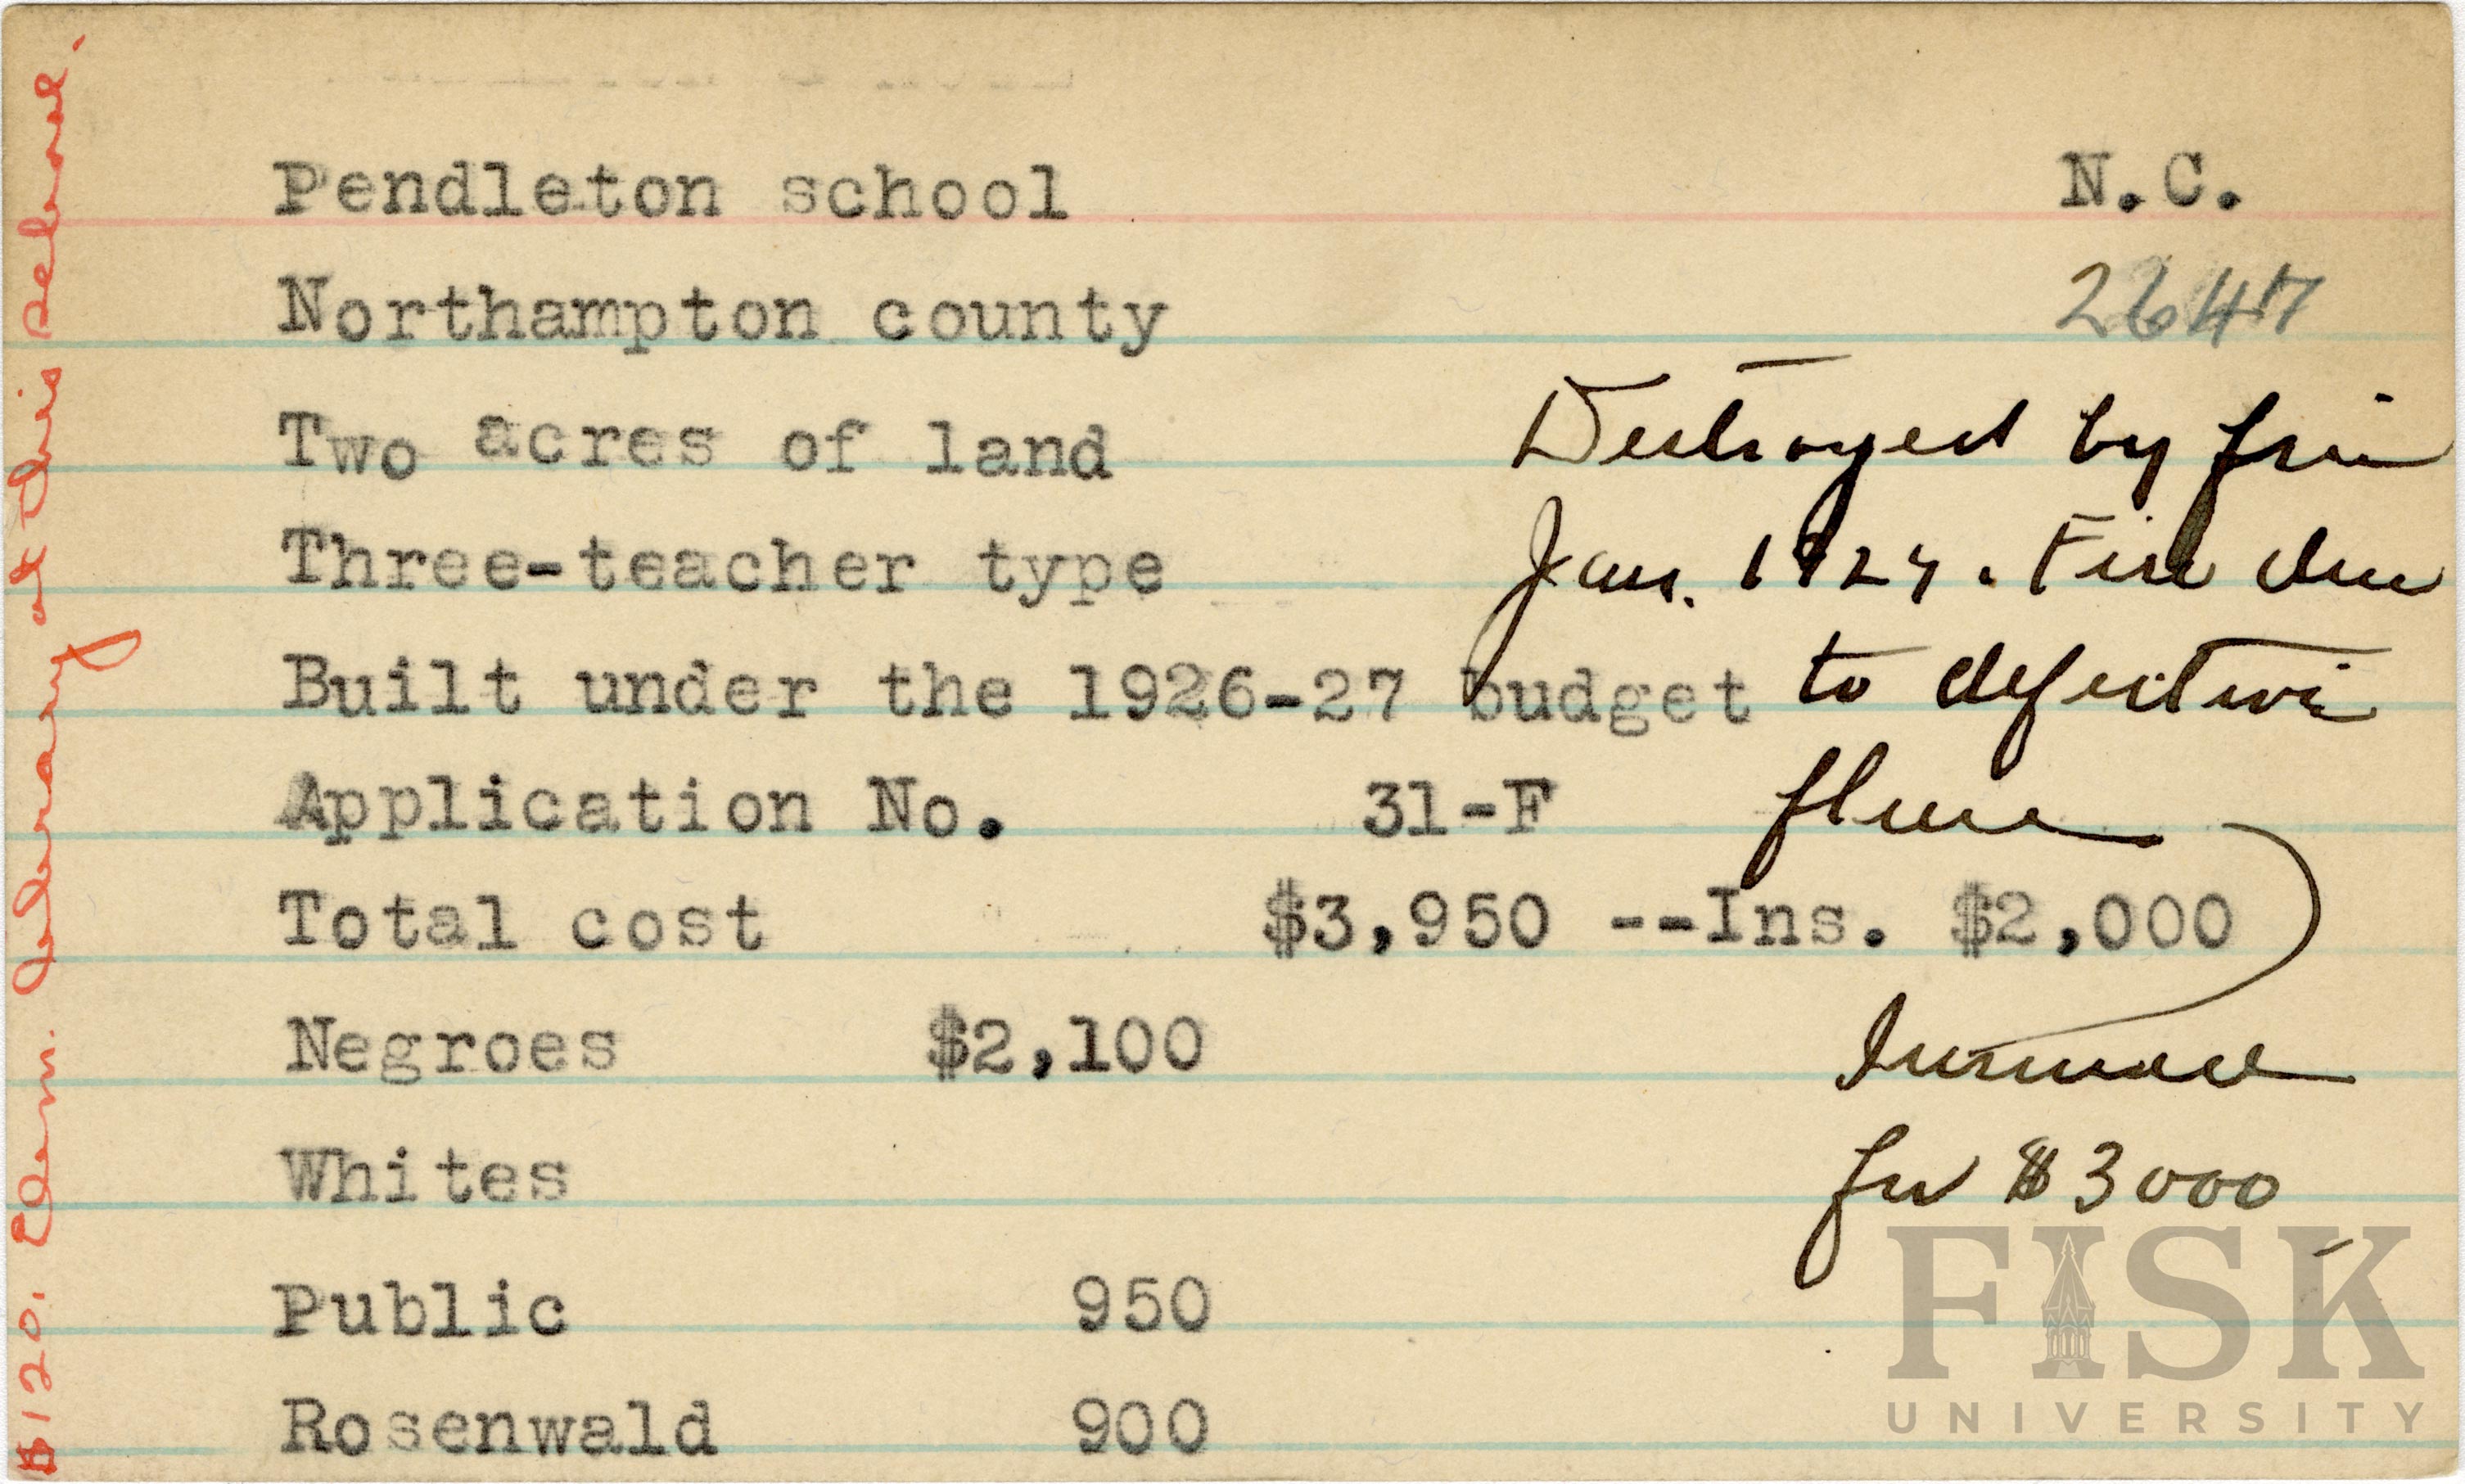 Pendleton school N.C.
Northampton county 2647
Two acres of land Destroyed by fire
Three-teacher type Jan. 1927. Fire due
Built under the 1926-27 budget to defective
Application No. 31-F flue
Total cost $3,950 --Ins. $2,000
Negroes $2,100 Insurance
Whites for $3000
Public 950
Rosenwald 900
$120. Elem. Library at this school.
FISK
UNIVERSITY